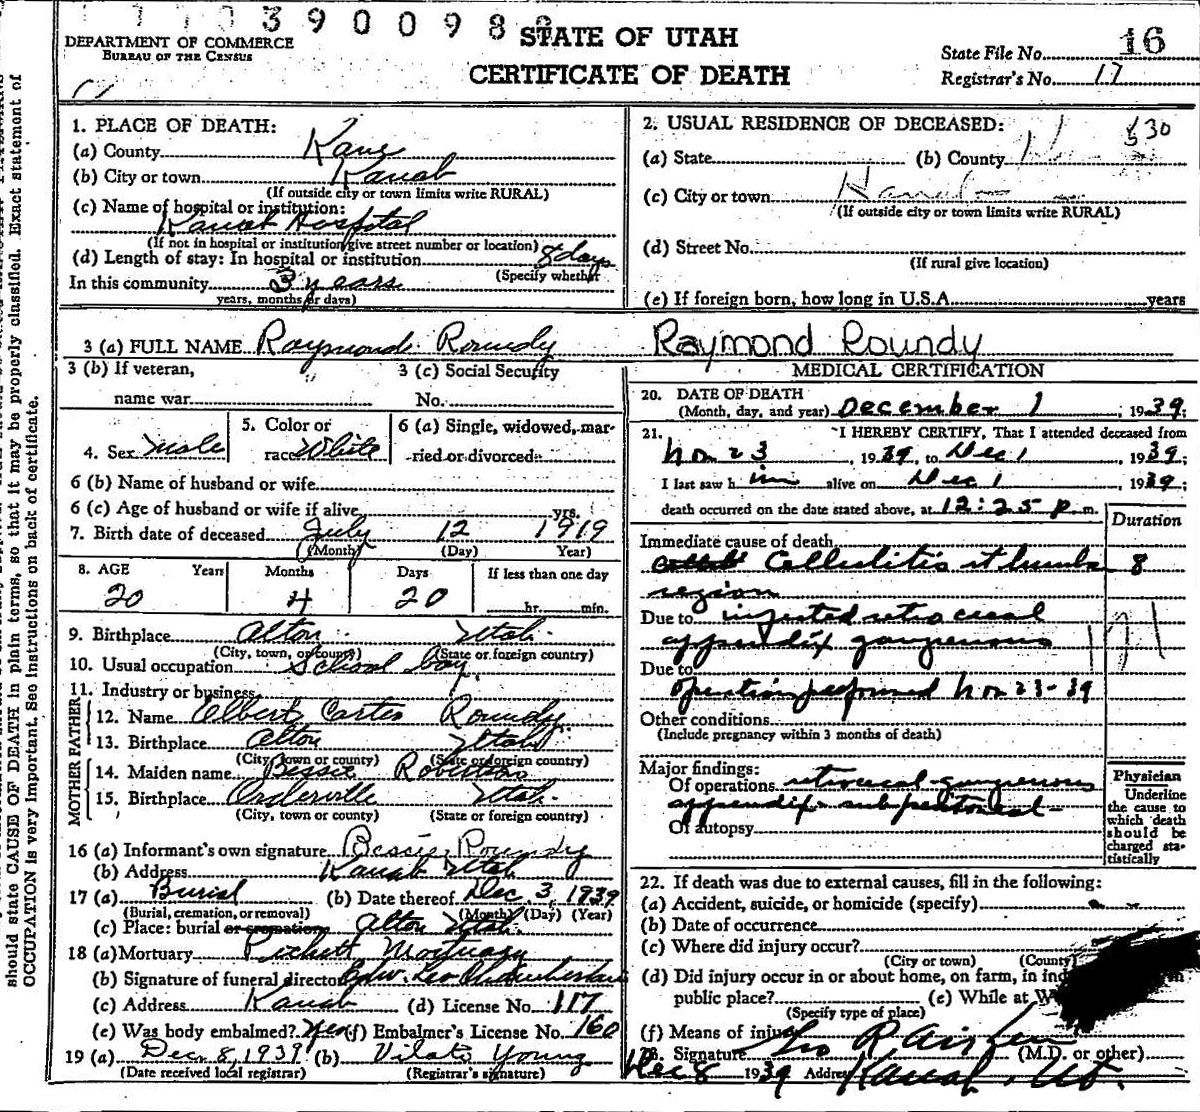 390098
DEPARTMENT OF COMMERCE
BUREAU OF THE CENSUS
STATE OF UTAH
CERTIFICATE OF DEATH
State File No. 16
Registrar's No. 17
should state CAUSE OF DEATH in plain terms, so that it may be properly classified. Exact statement of
OCCUPATION is very important. See instructions on back of certificate.
1. PLACE OF DEATH:
(a) County Kane
(b) City or town Kanab
(If outside city or town limits write RURAL)
(c) Name of hospital or institution:
Kanab Hospital
(If not in hospital or institution give street number or location)
(d) Length of stay: In hospital or institution 8 days
(Specify whether
In this community 3 years
years, months or days)
2. USUAL RESIDENCE OF DECEASED: 530
(a) State (b) County
(c) City or town Kanab
(If outside city or town limits write RURAL)
(d) Street No.
(If rural give location)
(e) If foreign born, how long in U.S.A. years
3 (a) FULL NAME Raymond Roundy Raymond Roundy
3 (b) If veteran,
name war
3 (c) Social Security
No.
4. Sex Male
5. Color or
race White
6 (a) Single, widowed, mar-
ried or divorced
6 (b) Name of husband or wife
6 (c) Age of husband or wife if alive yrs.
7. Birth date of deceased July 12 1919
(Month) (Day) Year)
8. AGE Years Months Days If less than one day
20 4 20 hr. min.
9. Birthplace Alton Utah
(City, town, or county) (State or foreign country)
10. Usual occupation School boy
11. Industry or business
FATHER
12. Name Albert Carter Roundy
13. Birthplace Alton Utah
(City, town or county) (State or foreign country)
MOTHER
14. Maiden name Bessie Robertson
15. Birthplace Orderville Utah
(City, town or county) (State or foreign country)
16 (a) Informant's own signature Bessie Roundy
(b) Address Kanab Utah
17 (a) Burial (b) Date thereof Dec. 3, 1939
(Burial, cremation, or removal) (Month) (Day) (Year)
(c) Place: burial or cremation Alton Utah.
18 (a) Mortuary Mortuary
(b) Signature of funeral director Leo
(c) Address Kanab (d) License No. 117
(e) Was body embalmed? Yes (f) Embalmer's License No. 160
19 (a) Dec 8, 1939 (b) Vilate Young
(Date received local registrar) (Registrar's signature)
MEDICAL CERTIFICATION
20. DATE OF DEATH
(Month, day, and year) December 1, 1939;
21. I HEREBY CERTIFY, That I attended deceased from
Nov 23, 1939, to Dec 1 1939;
I last saw him alive on Dec 1 1939;
death occurred on the date stated above, at 12:25 p. m.
Duration
Immediate cause of death
Cellulitis rt lumbar 8
region
Due to infected retrocecal
appendix gangrenous
121
Due to
operation performed Nov 23-39
Other conditions
(Include pregnancy within 3 months of death)
Major findings:
Of operations retrocecal gangrenous
appendix - subperitoneal
Of autopsy
Physician
Underline
the cause to
which death
should be
charged sta-
tistically
22. If death was due to external causes, fill in the following:
(a) Accident, suicide, or homicide (specify)
(b) Date of occurrence
(c) Where did injury occur?
(City or town) (County)
(d) Did injury occur in or about home, on farm, in ind
public place? (e) While at W
(Specify type of place)
(f) Means of injury
23. Signature Geo R Aiken (M.D. or other)
Dec 8 1939 Address Kanab, Ut.